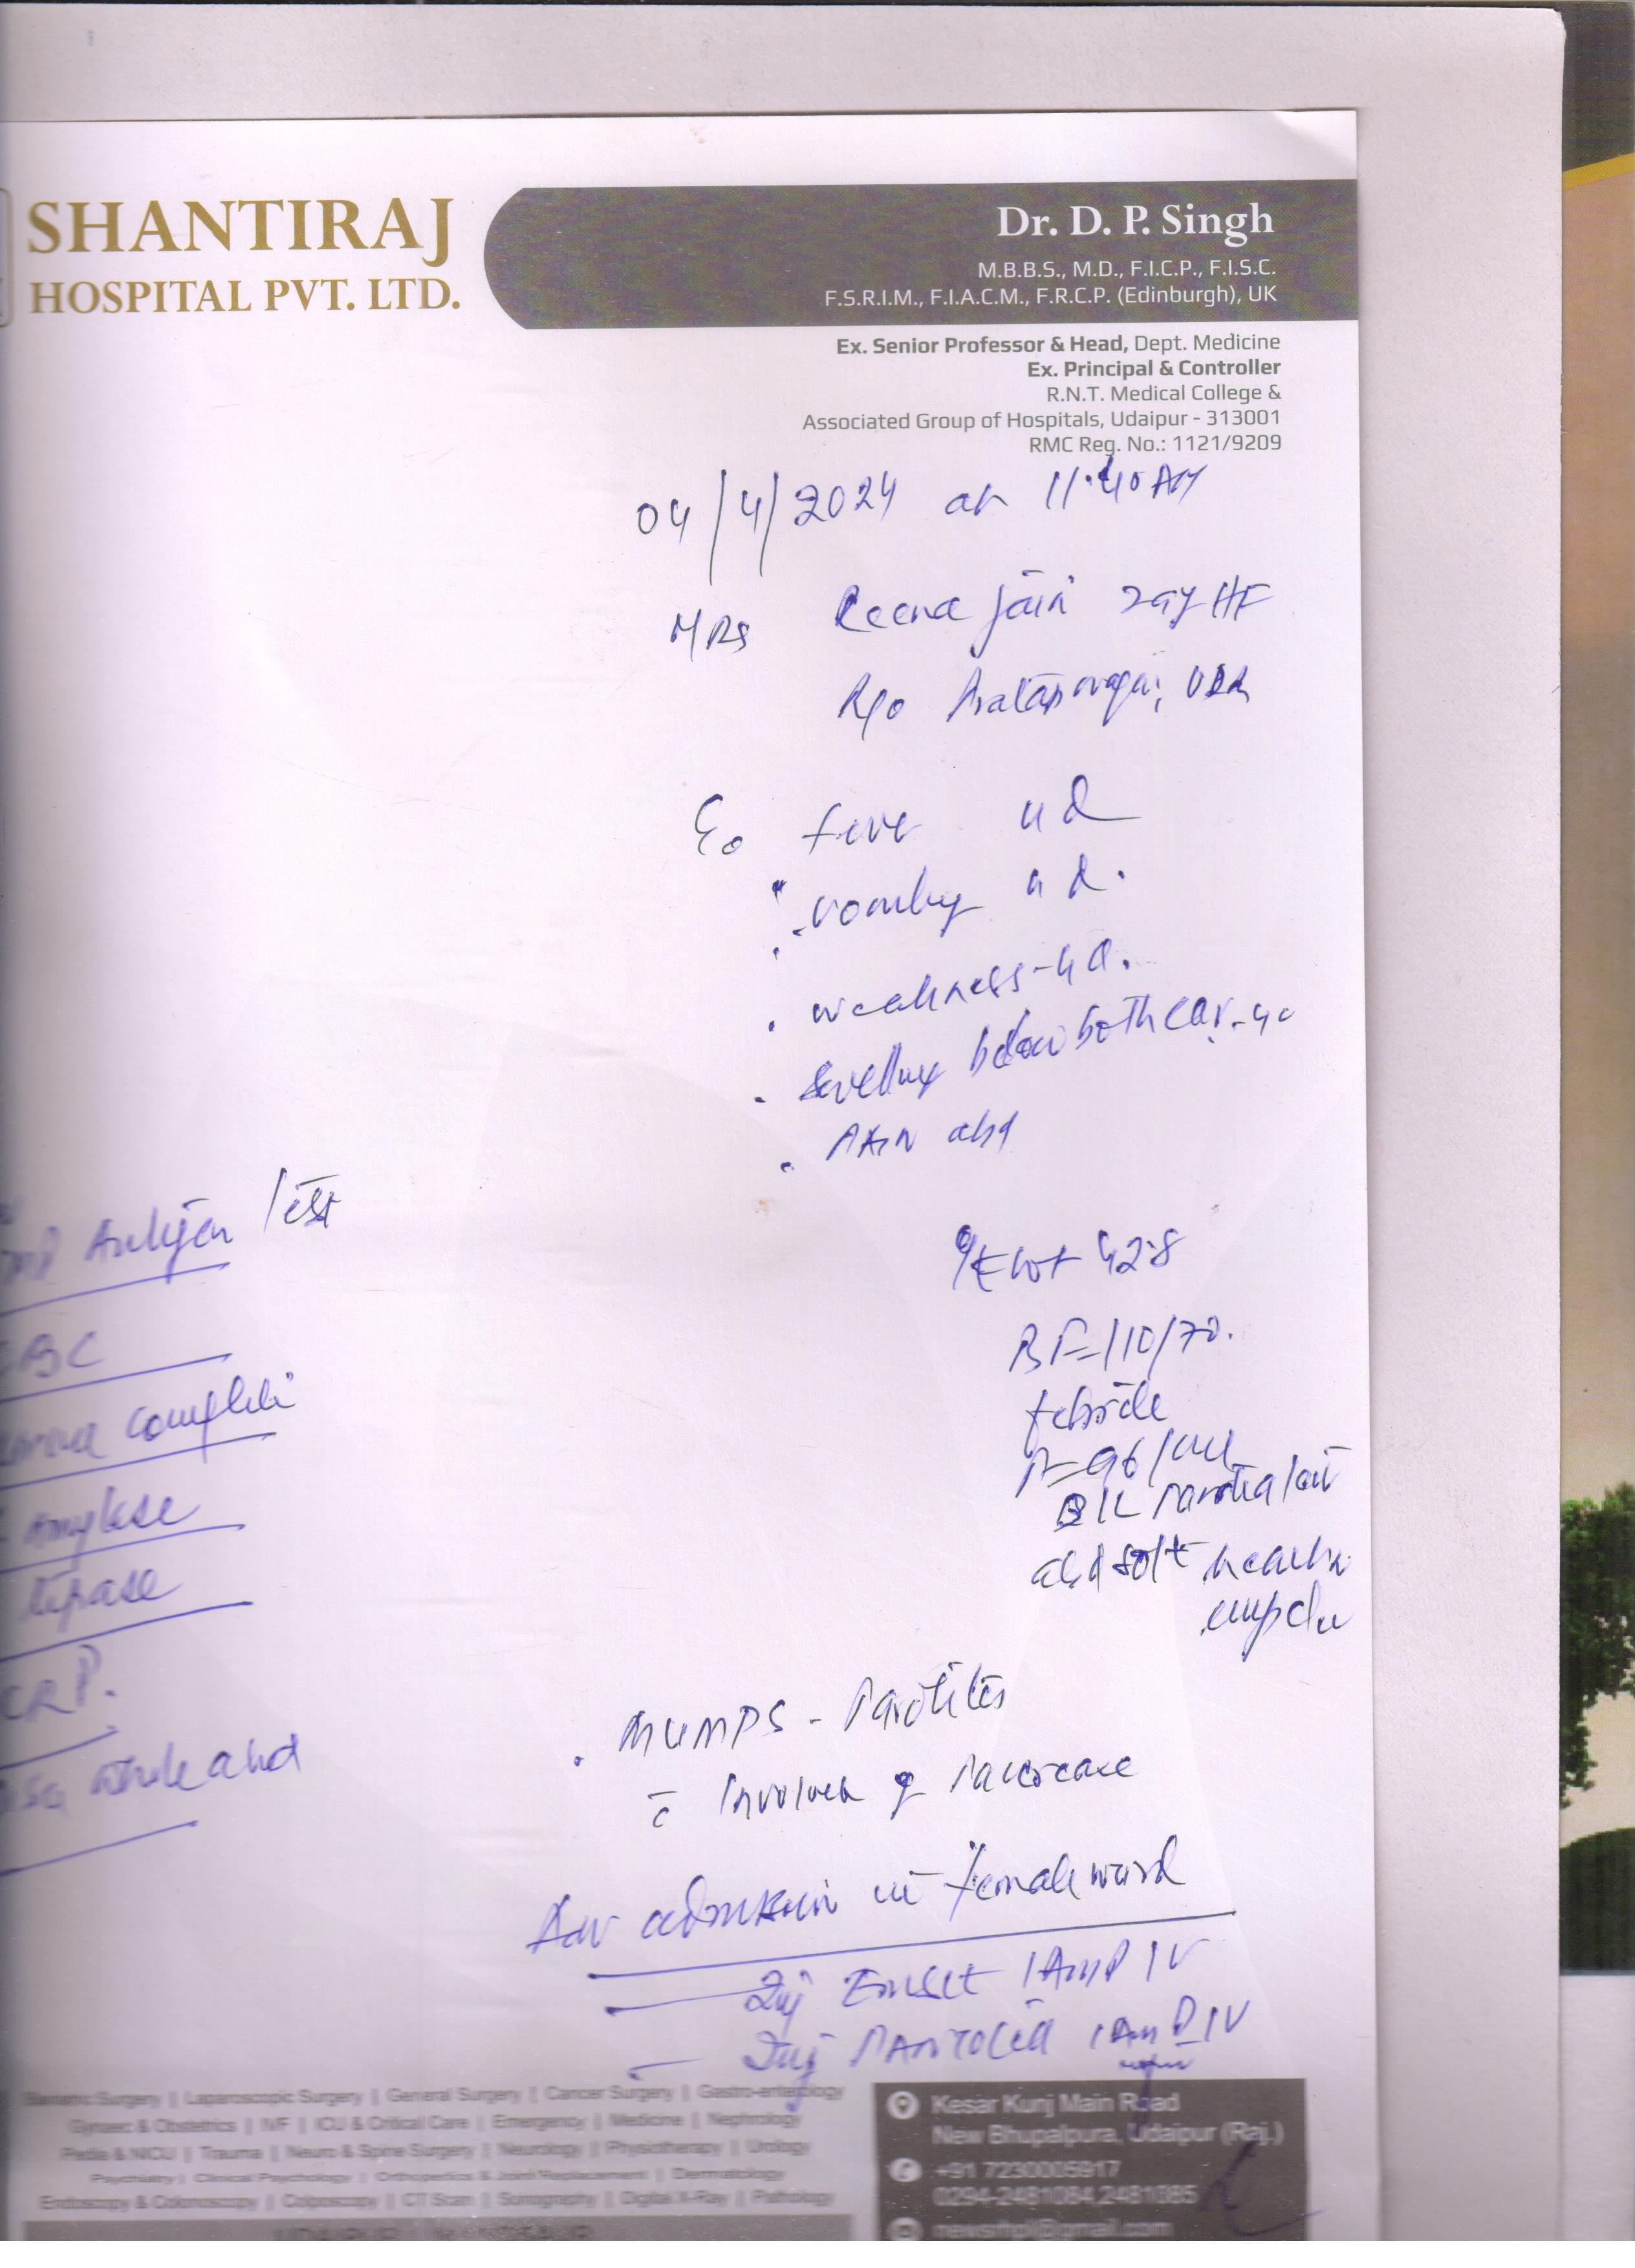 SHANTIRAJ
HOSPITAL PVT. LTD.
Dr. D. P. Singh
M.B.B.S., M.D., F.I.C.P., F.I.S.C.
F.S.R.I.M., F.I.A.C.M., F.R.C.P. (Edinburgh), UK
Ex. Senior Professor & Head, Dept. Medicine
Ex. Principal & Controller
R.N.T. Medical College &
Associated Group of Hospitals, Udaipur - 313001
RMC Reg. No.: 1121/9209
04/4/2024 at 11:40 AM
MRS Reena Jain
R/o Pratapnagar,
C/o fever 4 d
vomiting 4 d.
weakness - 4 d.
swelling below both ear
PAIN abd
Antigen Test
CBC
complete
Amylase
lipase
CRP.
whole abd
O/E wt 42.8
BP = 110/70.
febrile
P = 96/
B/L Parotid
abd soft
MUMPS - Parotitis
c̄ Involvement of Pancreas
Adv admission in female ward
Inj Emset 1 AMP IV
Inj PANTOCID 1 AMP IV
Bariatric Surgery | Laparoscopic Surgery | General Surgery | Cancer Surgery | Gastro-enterology
Gynaec & Obstetrics | IVF | ICU & Critical Care | Emergency | Medicine | Nephrology
Pedia & NICU | Trauma | Neuro & Spine Surgery | Neurology | Physiotherapy | Urology
Psychiatry | Clinical Psychology | Orthopedics & Joint Replacement | Dermatology
Endoscopy & Colonoscopy | Colposcopy | CT Scan | Sonography | Digital X-Ray | Pathology
Kesar Kunj Main Road
New Bhupalpura, Udaipur (Raj.)
+91 7230005917
0294-2481084, 2481085